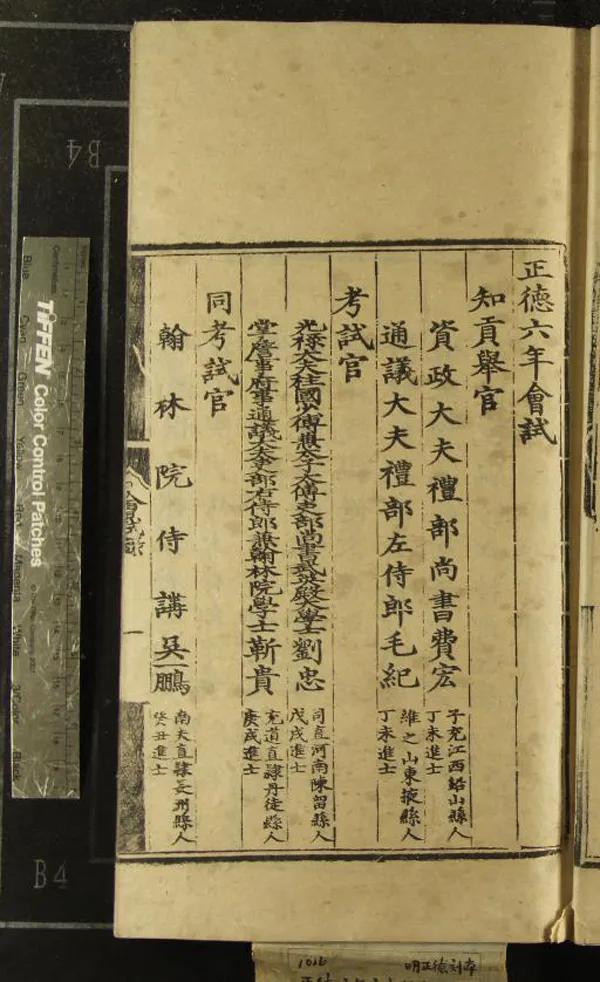 正德六年會試
知貢舉官
資政大夫禮部尚書費宏
子充江西鉛山縣人
丁未進士
通議大夫禮部左侍郎毛紀
維之山東掖縣人
丁未進士
考試官
光祿大夫柱國少傅兼太子太傅吏部尚書武英殿大學士劉忠
司直河南陳留縣人
戊戌進士
掌詹事府事通議大夫吏部右侍郎兼翰林院學士靳貴
充道直隸丹徒縣人
庚戌進士
同考試官
翰林院侍講吳一鵬
南夫直隸長洲縣人
癸丑進士
會試錄
一
TIFFEN Color Control Patches
Blue
Cyan
Green
Yellow
Red
Magenta
White
3/Color
Black
Centimetres
B4
B4
1016
明正德刻本